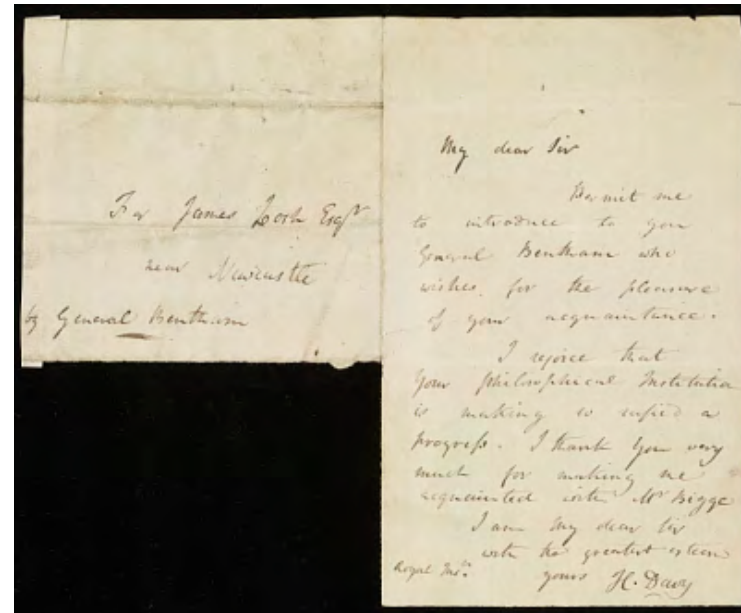 For James Losh Esqr
near Newcastle
by General Bentham
My dear Sir
Permit me
to introduce to you
General Bentham who
wishes for the pleasure
of your acquaintance.
I rejoice that
your philosophical Institution
is making so rapid a
progress. I thank you very
much for making me
acquainted with Mr Bigge
I am my dear Sir
with the greatest esteem
Royal Insn. yours H. Davy